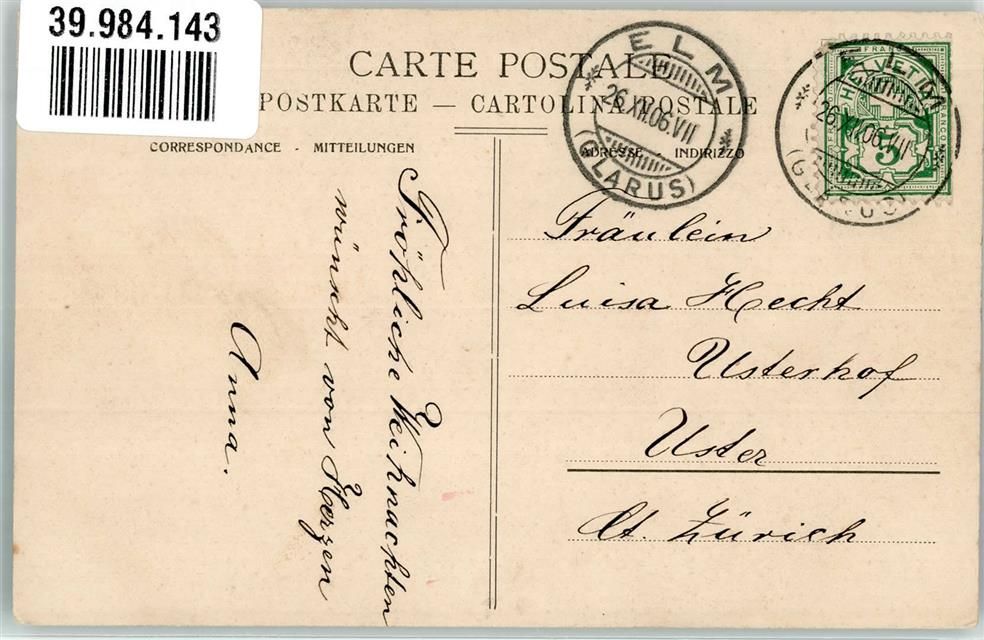 39.984.143
CARTE POSTALE
POSTKARTE — CARTOLINA POSTALE
CORRESPONDANCE - MITTEILUNGEN
ADRESSE INDIRIZZO
ELM
26.XII.06.VII
(GLARUS)
FRANCO
HELVETIA
5
FRANCO
ELM
26.XII.06.VII
(GLARUS)
Fröhliche Weihnachten
wünscht von Herzen
Anna.
Fräulein
Luisa Hecht
Usterhof
Uster
Ct. Zürich